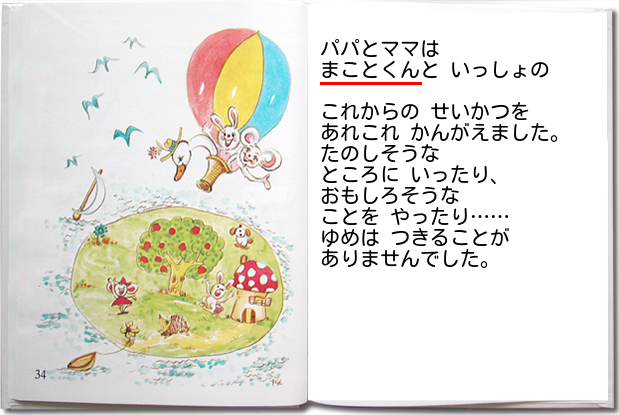 パパとママは
まことくんと いっしょの
これからの せいかつを
あれこれ かんがえました。
たのしそうな
ところに いったり、
おもしろそうな
ことを やったり……
ゆめは つきることが
ありませんでした。
34